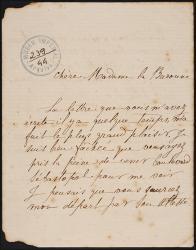 239
44
Chère Madame la Baronne
La lettre que vous m'avez
écrite il y a quelque temps m'a
fait le plus grand plaisir. Je
suis bien que vous ayez
pris la peine de venir
Sébastopol pour me voir
Je pensais que vous sauriez
mon départ par